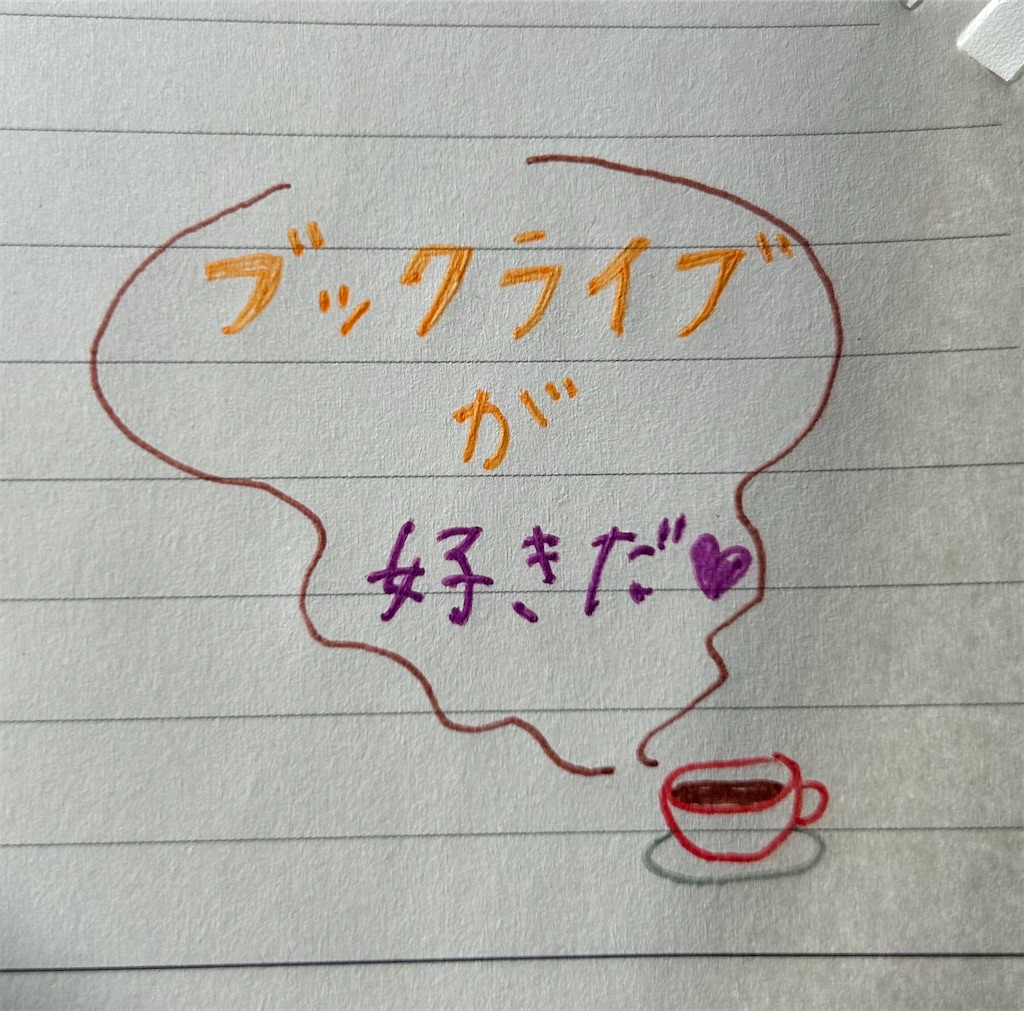 ブックライブ
が
好きだ♥